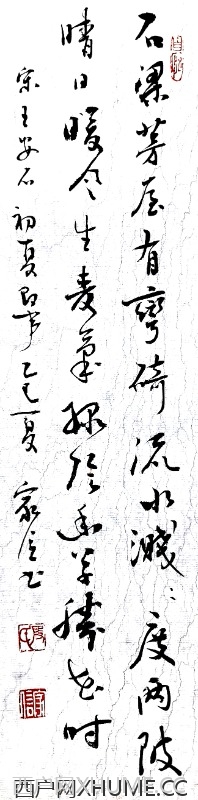 石梁茅屋有彎碕流水濺〻度兩陂
晴日暖风生麦氣綠陰幽草勝花时
宋王安石初夏即事乙巳夏家信书
西户网XHUME.CC